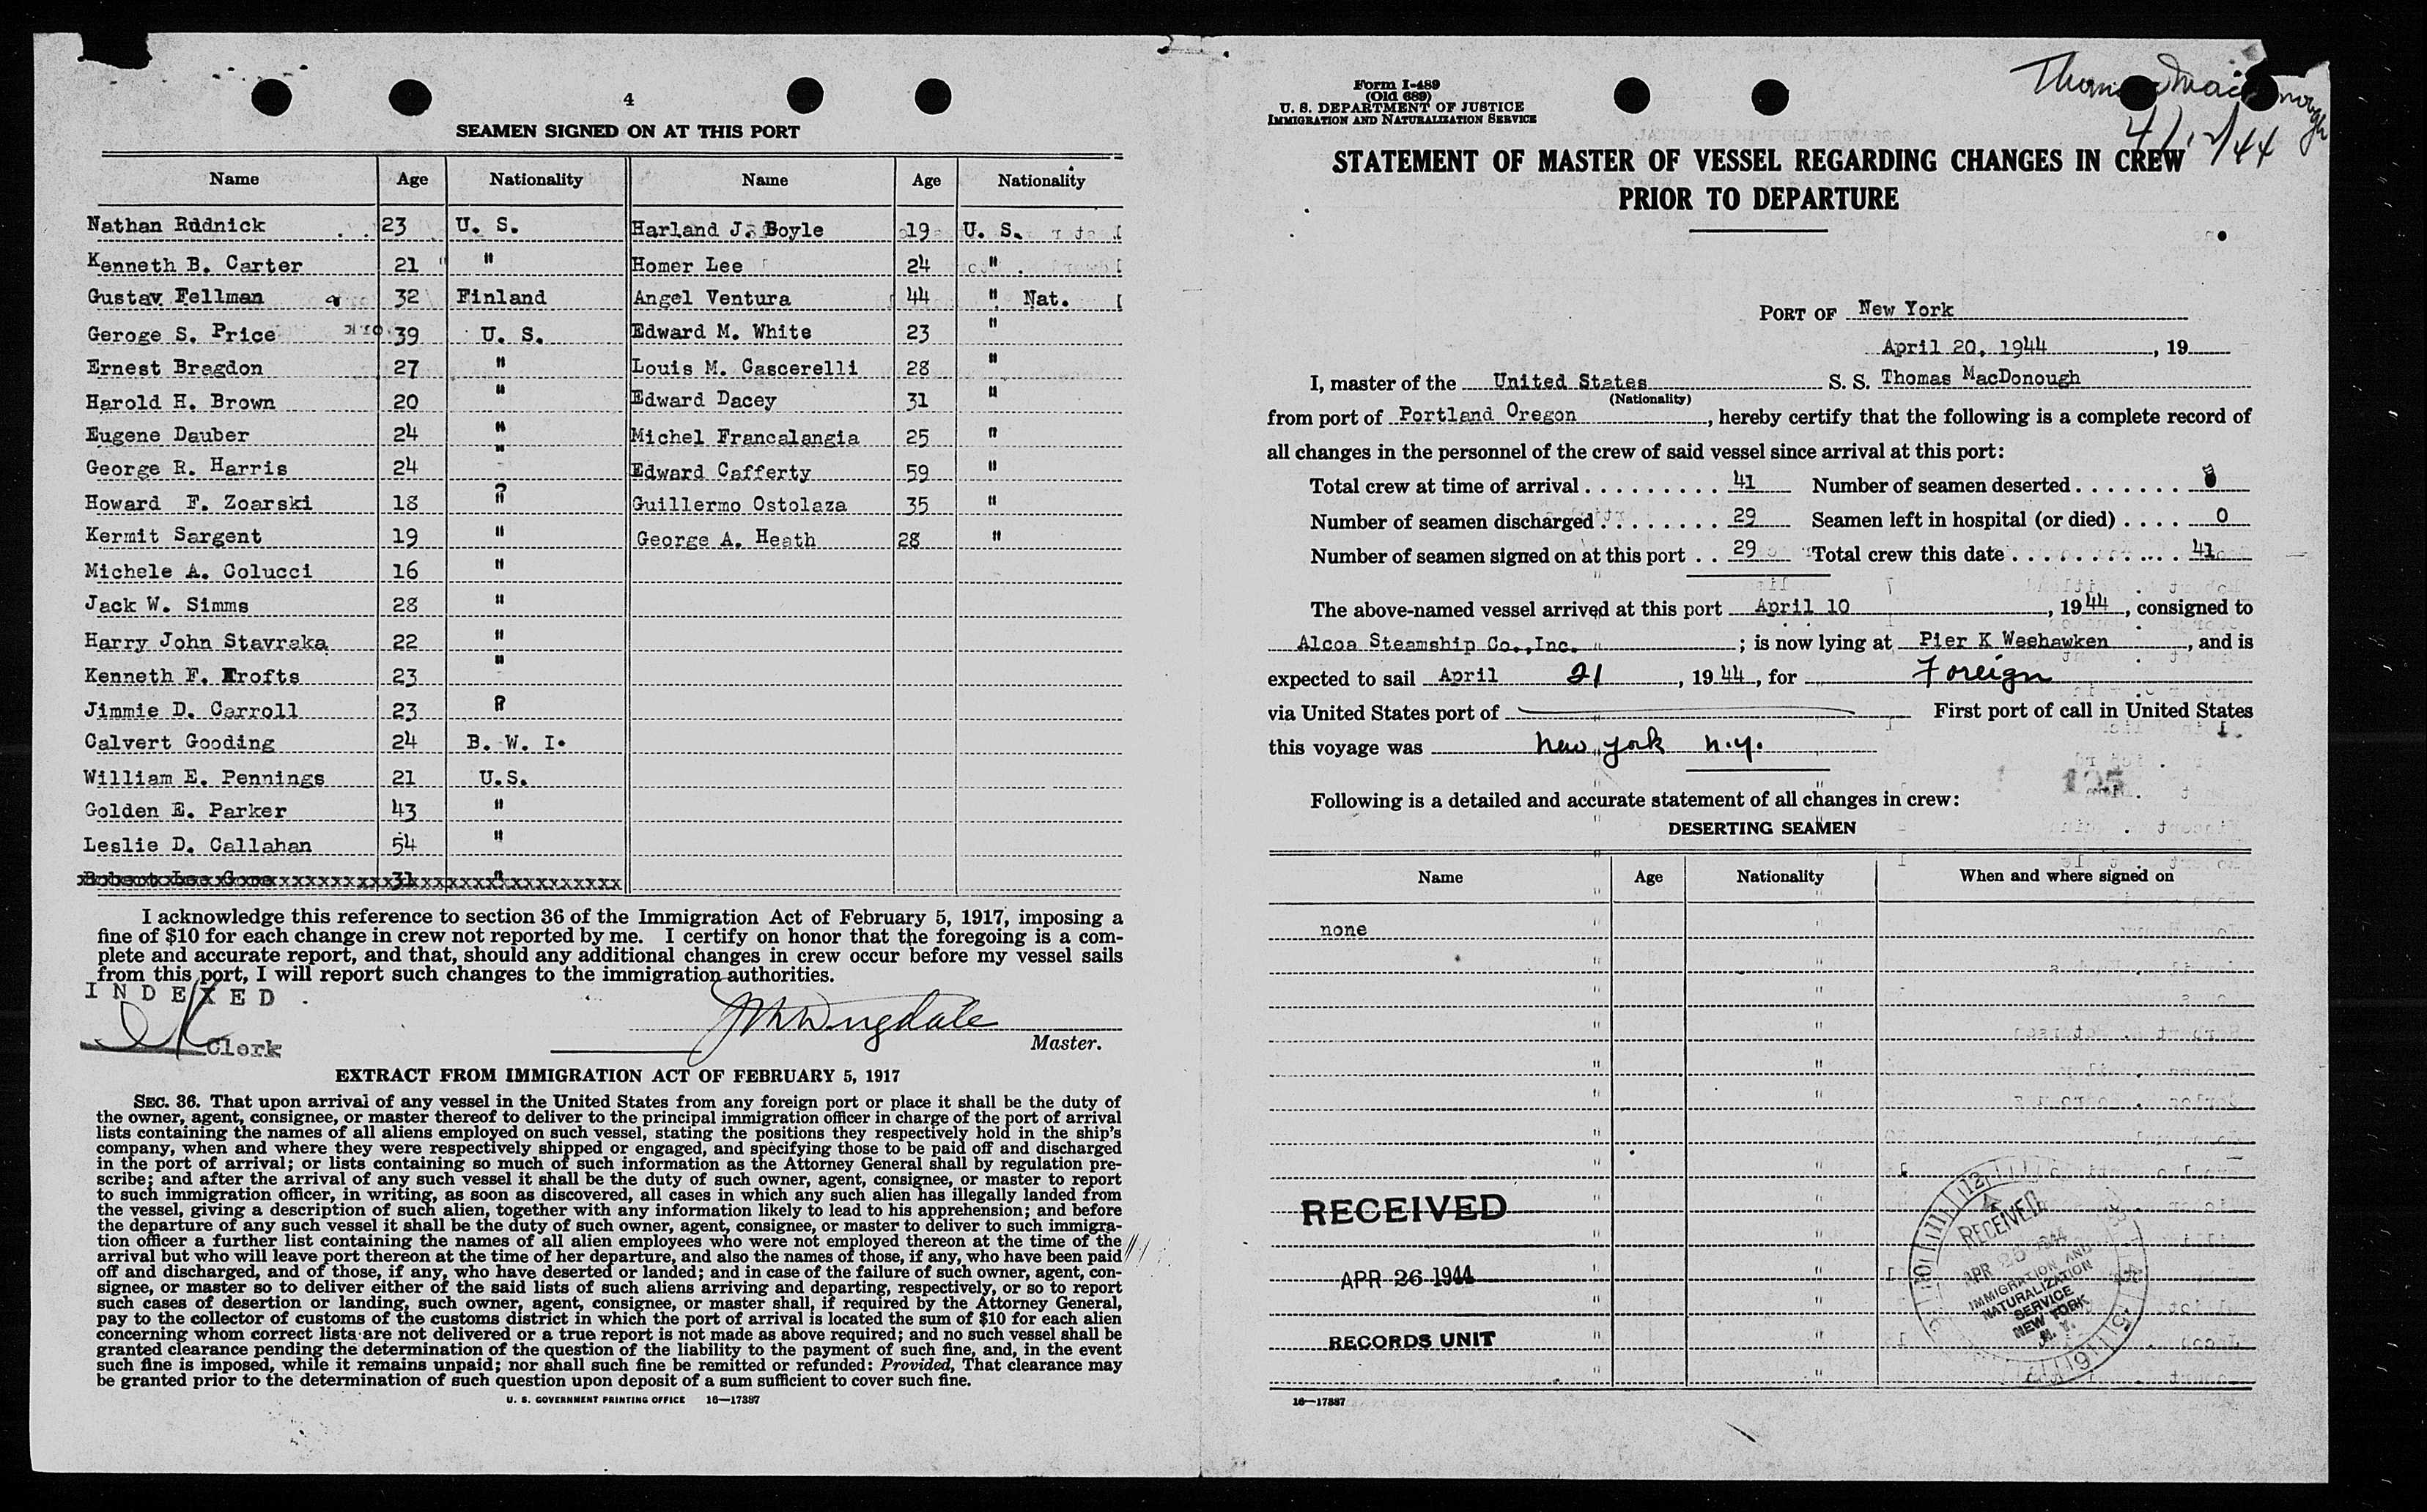 4
SEAMEN SIGNED ON AT THIS PORT
Name Age Nationality Name Age Nationality
Nathan Rudnick 23 U. S. Harland J. Boyle 19 U. S.
Kenneth B. Carter 21 " Homer Lee 24 "
Gustav Fellman 32 Finland Angel Ventura 44 " Nat.
Geroge S. Price 39 U. S. Edward M. White 23 "
Ernest Bragdon 27 " Louis M. Cascerelli 28 "
Harold H. Brown 20 " Edward Dacey 31 "
Eugene Dauber 24 " Michel Francalangia 25 "
George R. Harris 24 " Edward Cafferty 59 "
Howard F. Zoarski 18 " Guillermo Ostolaza 35 "
Kermit Sargent 19 " George A. Heath 28 "
Michele A. Colucci 16 "
Jack W. Simms 28 "
Harry John Stavraka 22 "
Kenneth F. Krofts 23 "
Jimmie D. Carroll 23 "
Calvert Gooding 24 B. W. I.
William E. Pennings 21 U.S.
Golden E. Parker 43 "
Leslie D. Callahan 54 "
Robert Lee Gore 31 "
I acknowledge this reference to section 36 of the Immigration Act of February 5, 1917, imposing a
fine of $10 for each change in crew not reported by me. I certify on honor that the foregoing is a com-
plete and accurate report, and that, should any additional changes in crew occur before my vessel sails
from this port, I will report such changes to the immigration authorities.
INDEXED
Clerk
Master.
EXTRACT FROM IMMIGRATION ACT OF FEBRUARY 5, 1917
SEC. 36. That upon arrival of any vessel in the United States from any foreign port or place it shall be the duty of
the owner, agent, consignee, or master thereof to deliver to the principal immigration officer in charge of the port of arrival
lists containing the names of all aliens employed on such vessel, stating the positions they respectively hold in the ship's
company, when and where they were respectively shipped or engaged, and specifying those to be paid off and discharged
in the port of arrival; or lists containing so much of such information as the Attorney General shall by regulation pre-
scribe; and after the arrival of any such vessel it shall be the duty of such owner, agent, consignee, or master to report
to such immigration officer, in writing, as soon as discovered, all cases in which any such alien has illegally landed from
the vessel, giving a description of such alien, together with any information likely to lead to his apprehension; and before
the departure of any such vessel it shall be the duty of such owner, agent, consignee, or master to deliver to such immigra-
tion officer a further list containing the names of all alien employees who were not employed thereon at the time of the
arrival but who will leave port thereon at the time of her departure, and also the names of those, if any, who have been paid
off and discharged, and of those, if any, who have deserted or landed; and in case of the failure of such owner, agent, con-
signee, or master so to deliver either of the said lists of such aliens arriving and departing, respectively, or so to report
such cases of desertion or landing, such owner, agent, consignee, or master shall, if required by the Attorney General,
pay to the collector of customs of the customs district in which the port of arrival is located the sum of $10 for each alien
concerning whom correct lists are not delivered or a true report is not made as above required; and no such vessel shall be
granted clearance pending the determination of the question of the liability to the payment of such fine, and, in the event
such fine is imposed, while it remains unpaid; nor shall such fine be remitted or refunded: Provided, That clearance may
be granted prior to the determination of such question upon deposit of a sum sufficient to cover such fine.
U. S. GOVERNMENT PRINTING OFFICE 16—17387
Form I-489
(Old 689)
U. S. DEPARTMENT OF JUSTICE
IMMIGRATION AND NATURALIZATION SERVICE
STATEMENT OF MASTER OF VESSEL REGARDING CHANGES IN CREW
PRIOR TO DEPARTURE
PORT OF New York
April 20, 1944, 19
I, master of the United States S. S. Thomas MacDonough
(Nationality)
from port of Portland Oregon, hereby certify that the following is a complete record of
all changes in the personnel of the crew of said vessel since arrival at this port:
Total crew at time of arrival 41 Number of seamen deserted
Number of seamen discharged 29 Seamen left in hospital (or died) 0
Number of seamen signed on at this port 29 Total crew this date 41
The above-named vessel arrived at this port April 10, 1944, consigned to
Alcoa Steamship Co.,Inc. ; is now lying at Pier K Weehawken, and is
expected to sail April 21, 1944, for Foreign
via United States port of First port of call in United States
this voyage was New York N.Y.
125
Following is a detailed and accurate statement of all changes in crew:
DESERTING SEAMEN
Name Age Nationality When and where signed on
none
RECEIVED
APR 26 1944
RECORDS UNIT
RECEIVED
APR 1944
IMMIGRATION AND
NATURALIZATION
SERVICE
NEW YORK
N. Y.
16—17387